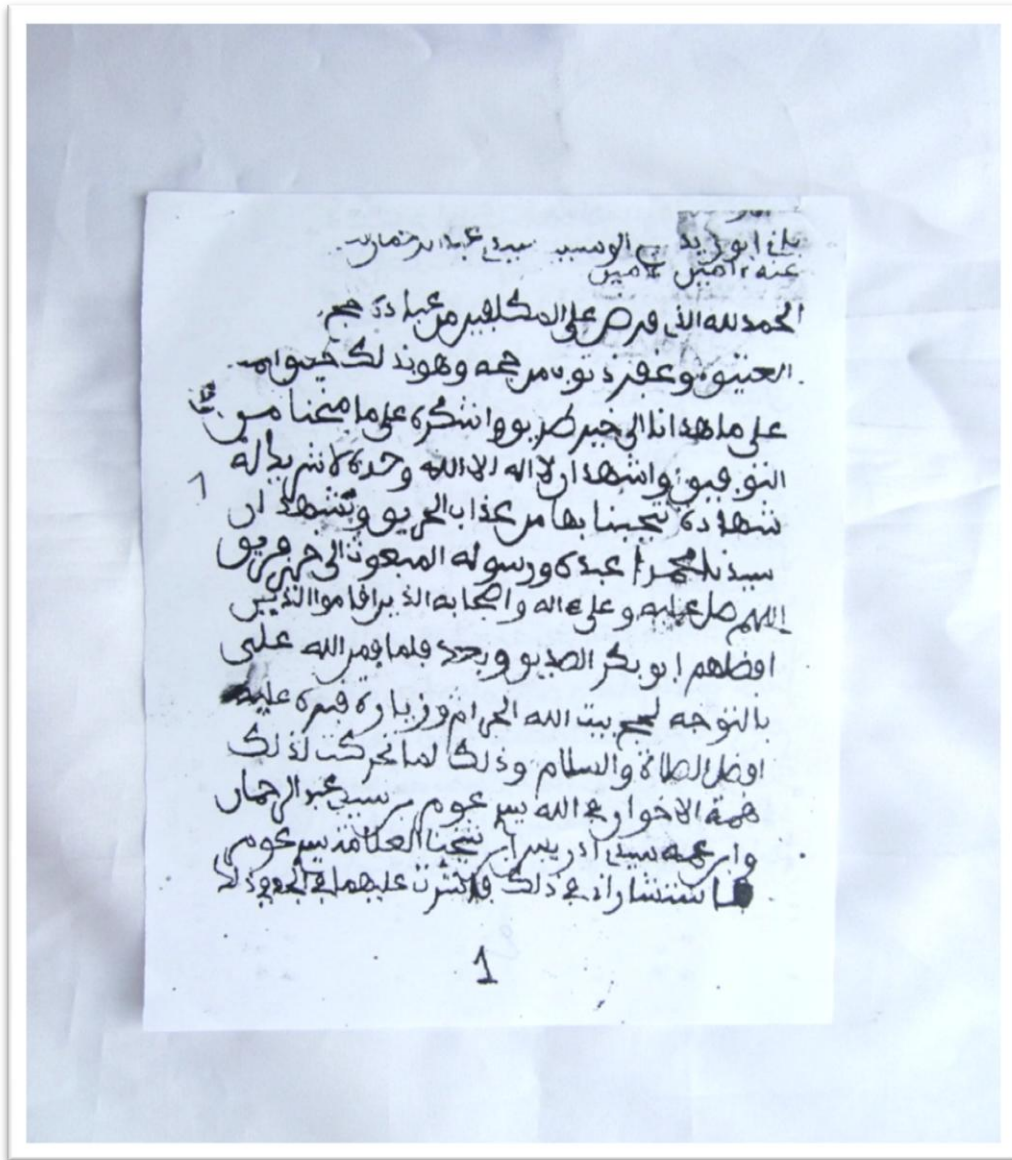 ابو زيد سيدي عبد الرحمان
عنه ءامين ءامين
الحمد لله الذي فرض على المكلفين من عباده حج
العتيق وغفر ذنوب من حجه وهو بذلك حقيق
على ما هدانا الى خير طريق واشكره على ما منحنا من
التوفيق واشهد ان لا اله الا الله وحده لا شريك له
شهادة تنجينا بها من عذاب الحريق ونشهد ان
سيدنا محمدا عبده ورسوله المبعوث الى خير فريق
اللهم صل عليه وعلى ءاله واصحابه الذين اقاموا الدين
افضلهم ابو بكر الصديق وبعد فلما من الله علي
بالتوجه لحج بيت الله الحرام وزيارة قبره عليه
افضل الصلاة والسلام وذلك لما تحركت لذلك
همة الاخوان في الله سيدي عبد الرحمان
وابن عمه سيدي ادريس ابن شيخنا العلامة
استشاراني في ذلك فاشرت عليهما في ذلك
1